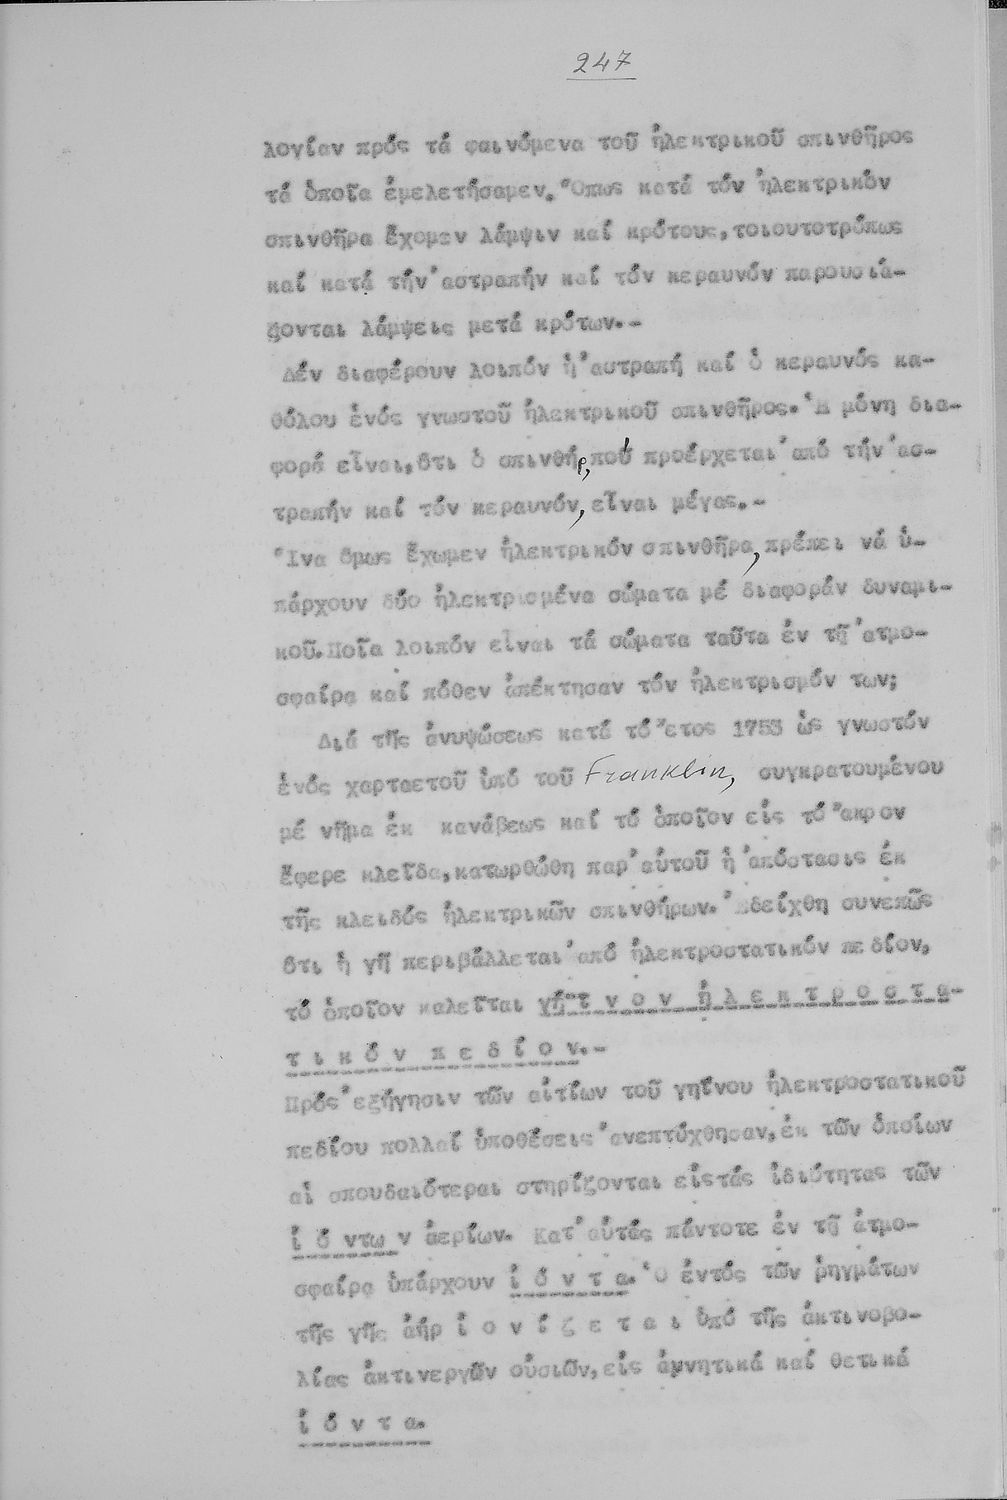 247
λογίαν πρός τά φαινόμενα τοῦ ἠλεκτρικοῦ σπινθῆρος
τά ὁποῖα ἐμελετήσαμεν. Ὅπως κατά τόν ἠλεκτρικόν
σπινθῆρα ἔχομεν λάμψιν καί κρότους, τοιουτοτρόπως
καί κατά τήν ἀστραπήν καί τόν κεραυνόν παρουσιά-
ζονται λάμψεις μετά κρότων.-
Δέν διαφέρουν λοιπόν ἡ ἀστραπή καί ὁ κεραυνός κα-
θόλου ἑνός γνωστοῦ ἠλεκτρικοῦ σπινθῆρος. Ἡ μόνη δια-
φορά εἶναι, ὅτι ὁ σπινθήρ, πού προέρχεται ἀπό τήν ἀσ-
τραπήν καί τόν κεραυνόν, εἶναι μέγας.-
Ἵνα ὅμως ἔχωμεν ἠλεκτρικόν σπινθῆρα, πρέπει νά ὑ-
πάρχουν δύο ἠλεκτρισμένα σώματα μέ διαφοράν δυναμι-
κοῦ. Ποῖα λοιπόν εἶναι τά σώματα ταῦτα ἐν τῇ ἀτμο-
σφαίρᾳ καί πόθεν ἀπέκτησαν τόν ἠλεκτρισμόν των;
Διά τῆς ἀνυψώσεως κατά τό ἔτος 1753 ὡς γνωστόν
ἑνός χαρταετοῦ ὑπό τοῦ Franklin, συγκρατουμένου
μέ νῆμα ἐκ κανάβεως καί τό ὁποῖον εἰς τό ἄκρον
ἔφερε κλεῖδα, κατωρθώθη παρ' αὐτοῦ ἡ ἀπόστασις ἐκ
τῆς κλειδός ἠλεκτρικῶν σπινθήρων. Ἐδείχθη συνεπῶς
ὅτι ἡ γῆ περιβάλλεται ἀπό ἠλεκτροστατικόν πεδίον,
τό ὁποῖον καλεῖται γήϊνον ἠλεκτροστα-
τικόν πεδίον.-
Πρός ἐξήγησιν τῶν αἰτίων τοῦ γηΐνου ἠλεκτροστατικοῦ
πεδίου πολλαί ὑποθέσεις ἀνεπτύχθησαν, ἐκ τῶν ὁποίων
αἱ σπουδαιότεραι στηρίζονται εἰς τάς ἰδιότητας τῶν
ἰόντων ἀερίων. Κατ' αὐτάς πάντοτε ἐν τῇ ἀτμο-
σφαίρᾳ ὑπάρχουν ἰόντα. Ὁ ἐντός τῶν ῥηγμάτων
τῆς γῆς ἀήρ ἰονίζεται ὑπό τῆς ἀκτινοβο-
λίας ἀκτινεργῶν οὐσιῶν, εἰς ἀρνητικά καί θετικά
ἰόντα.